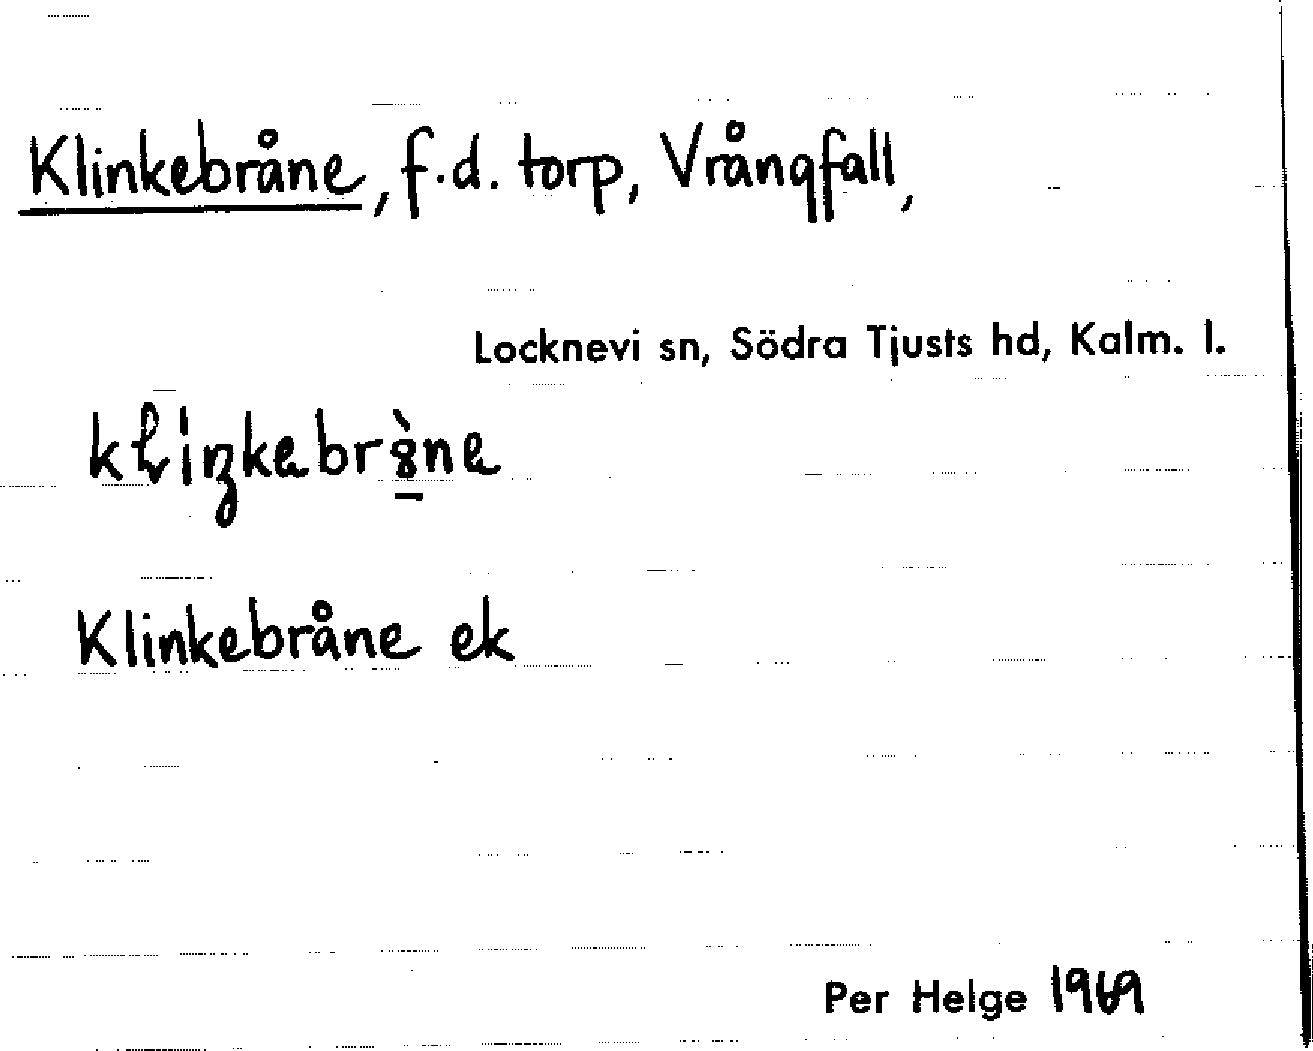 Klinkebråne, f.d. torp, Vrångfall,
Locknevi sn, Södra Tjusts hd, Kalm. l.
Klinkebråne ek
Per Helge 1969